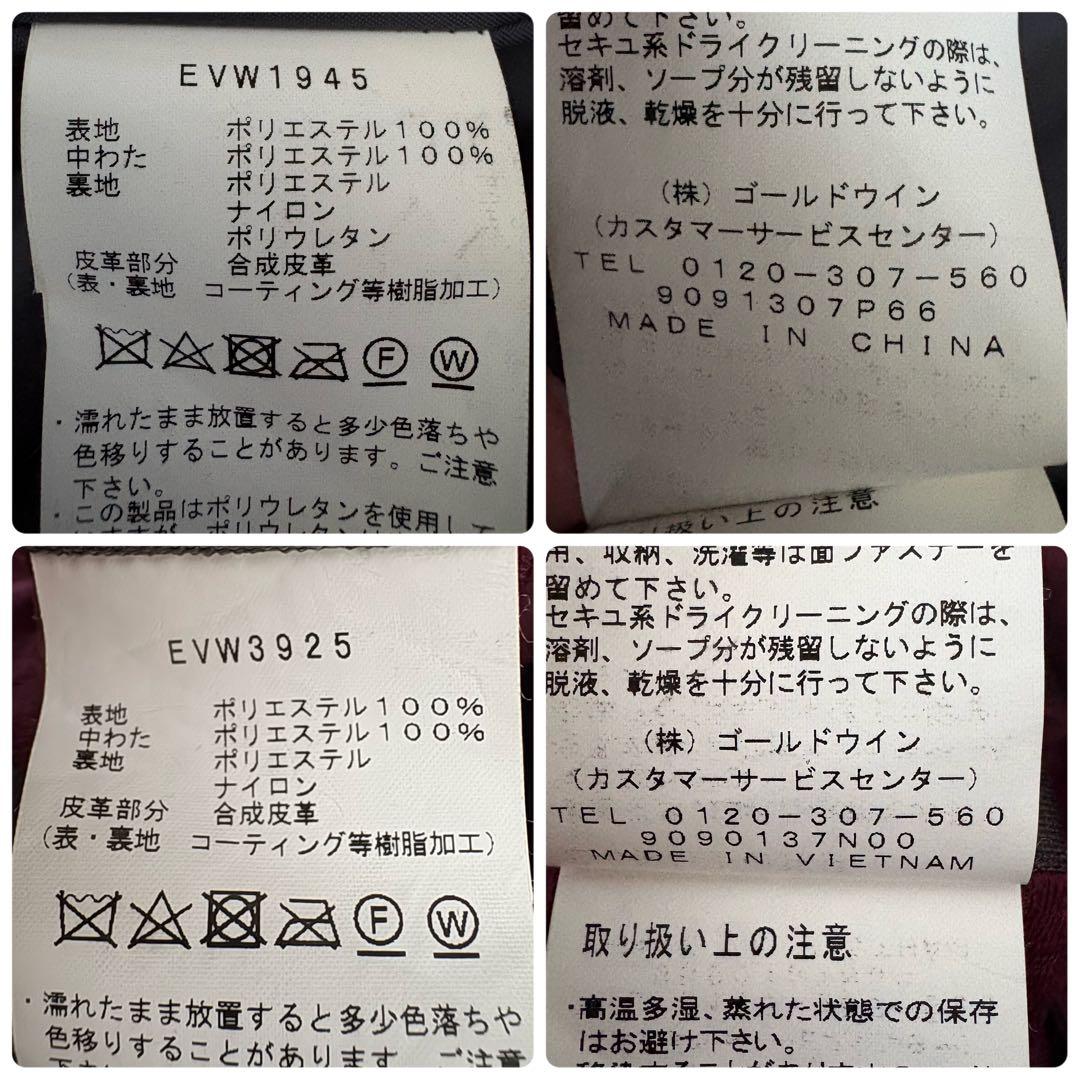 EVW1945
表地 ポリエステル100%
中わた ポリエステル100%
裏地 ポリエステル
ナイロン
ポリウレタン
皮革部分 合成皮革
(表・裏地 コーティング等樹脂加工)
F W
・濡れたまま放置すると多少色落ちや
色移りすることがあります。ご注意
下さい。
・この製品はポリウレタンを使用して
留めて下さい。
セキユ系ドライクリーニングの際は、
溶剤、ソープ分が残留しないように
脱液、乾燥を十分に行って下さい。
(株) ゴールドウイン
(カスタマーサービスセンター)
TEL 0120-307-560
9091307P66
MADE IN CHINA
り扱い上の注意
EVW3925
表地 ポリエステル100%
中わた ポリエステル100%
裏地 ポリエステル
ナイロン
皮革部分 合成皮革
(表・裏地 コーティング等樹脂加工)
F W
・濡れたまま放置すると多少色落ちや
色移りすることがあります。ご注意
用、収納、洗濯等は面ファスナーを
留めて下さい。
セキユ系ドライクリーニングの際は、
溶剤、ソープ分が残留しないように
脱液、乾燥を十分に行って下さい。
(株) ゴールドウイン
(カスタマーサービスセンター)
TEL 0120-307-560
9090137N00
MADE IN VIETNAM
取り扱い上の注意
・高温多湿、蒸れた状態での保存
はお避け下さい。